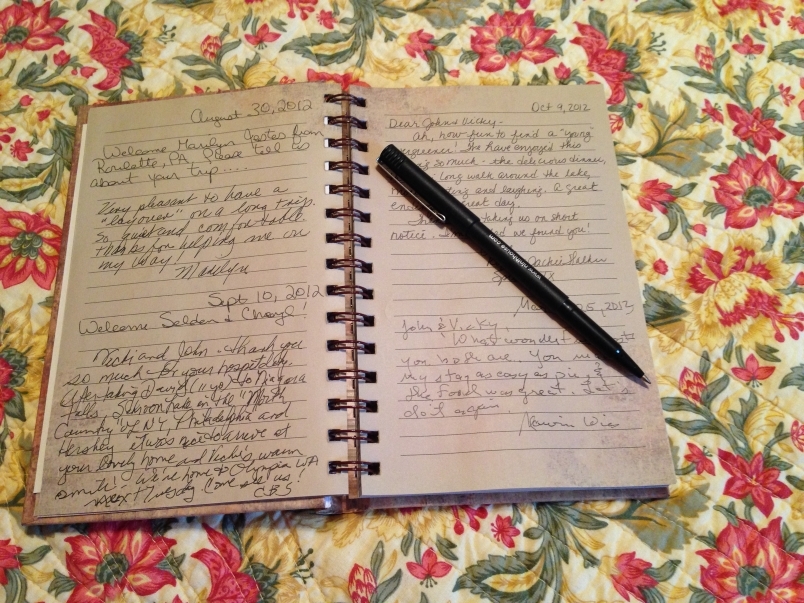 August 30, 2012
Welcome Marilyn Jostes from
Roulette, PA. Please tell us
about your trip....
Very pleasant to have a
on a long trip.
So quiet and comfortable.
Thanks for helping me on
my way!
Marilyn
Sept 10, 2012
Welcome Selden & Cheryl!
Vicki and John - thank you
so much for your hospitality.
After taking to Niagara
Falls, in the "North
Country" of NY, Philadelphia and
Hershey it was nice to arrive at
your lovely home and Vicki's warm
smile! We're home to Olympia WA
next Tuesday. Come see us!
C & S
Oct 9, 2012
Dear John & Vicky -
Ah, how fun to find a "young"
! We have enjoyed this
so much - the delicious dinner,
long walk around the lake,
and laughing. A great
great day.
taking us on short
notice. we found you!
Jackie
25, 2012
John & Vicky,
What
you both are. You
my stay as easy as pie &
the food was great. Let's
do it again